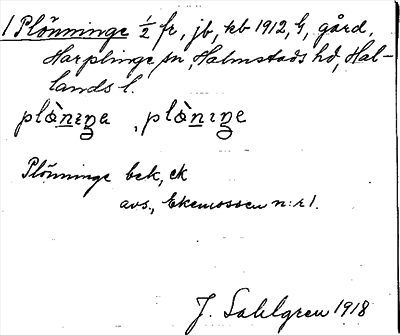 1 Plönninge 1/2 fr, jb, kb 1912, G, gård,
Harplinge sn, Halmstads hd, Hal-
lands l.
plö̀niŋa, plö̀niŋe
Plönninge bek, ek
avs., Ekemossen n:r 1.
J. Sahlgren 1918